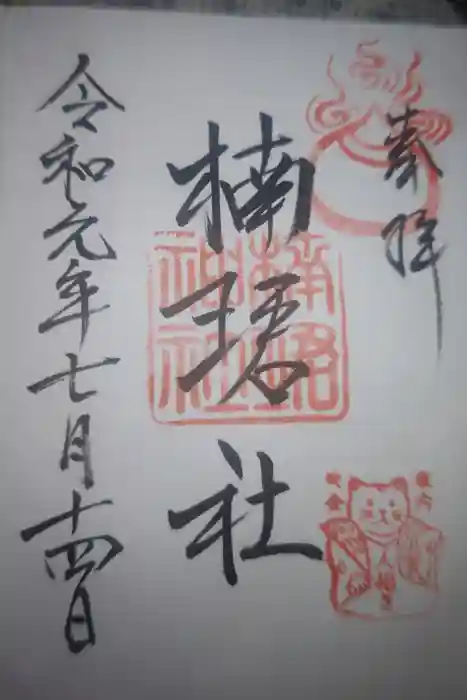 奉拝
楠珺社
令和元年七月十四日
楠珺
神社